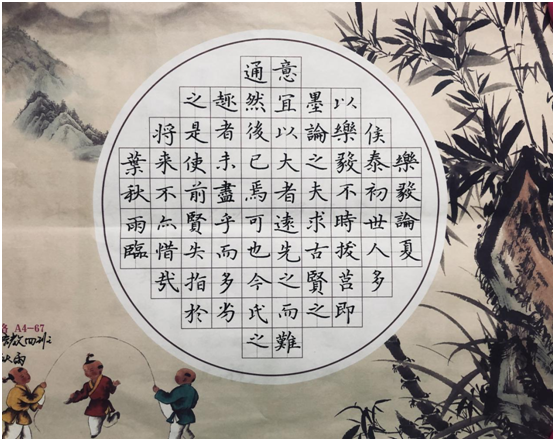 樂毅論夏
侯泰初世人多
以樂毅不時拔莒即
墨論之夫求古賢之
意宜以大者遠先之而難
通然後已焉可也今氏之
趣者未盡乎而多劣
之是使前賢失指於
將來不亦惜哉
葉秋雨臨
A4-67